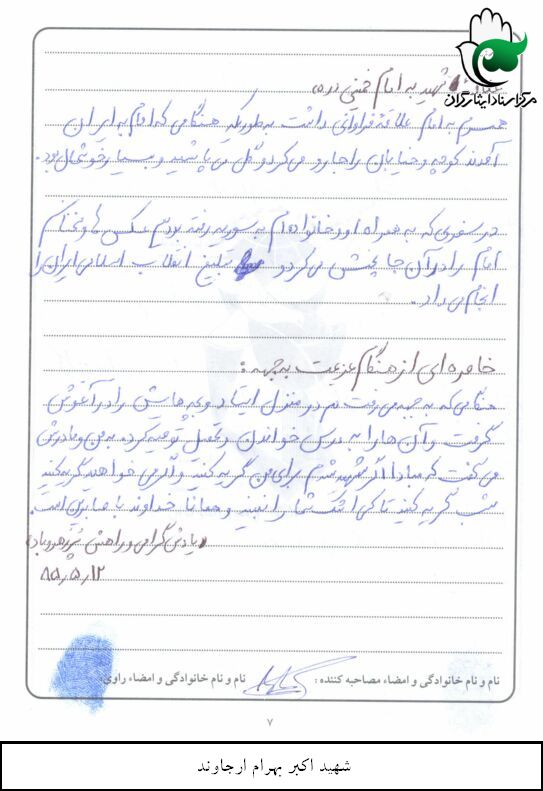 مرکز اسناد ایثارگران
شهید به امام خمینی (ره)
همسرم به امام علاقه فراوانی داشت به طوریکه هنگامی که امام به ایران
آمدند کوچه و خیابان را جارو می کرد و گل می پاشید و بسیار خوشحال بود.
در سفری که به همراه او و خانواده ام به سوریه رفته بودیم عکس ها و سخنان
امام را در آن جا پخش می کرد و تبلیغ انقلاب اسلامی ایران را
انجام می داد.
خاطره ای از هنگام عزیمت به جبهه:
هنگامی که به جبهه می رفت دم در منزل ایستاد و بچه هایش را در آغوش
گرفت و آن ها را به درس خواندن و تحمل توصیه کرد. به من و مادرش
می گفت که مبادا اگر شهید شدم برای من گریه کنید و اگر می خواهید گریه کنید
شب گریه کنید تا کسی اشک شما را نبیند و همانا خداوند با صابرین است.
«یادش گرامی و راهش پر رهرو باد»
۸۵٫۵٫۱۲
نام و نام خانوادگی و امضاء مصاحبه کننده: نام و نام خانوادگی و امضاء راوی:
۷
شهید اکبر بهرام ارجاوند